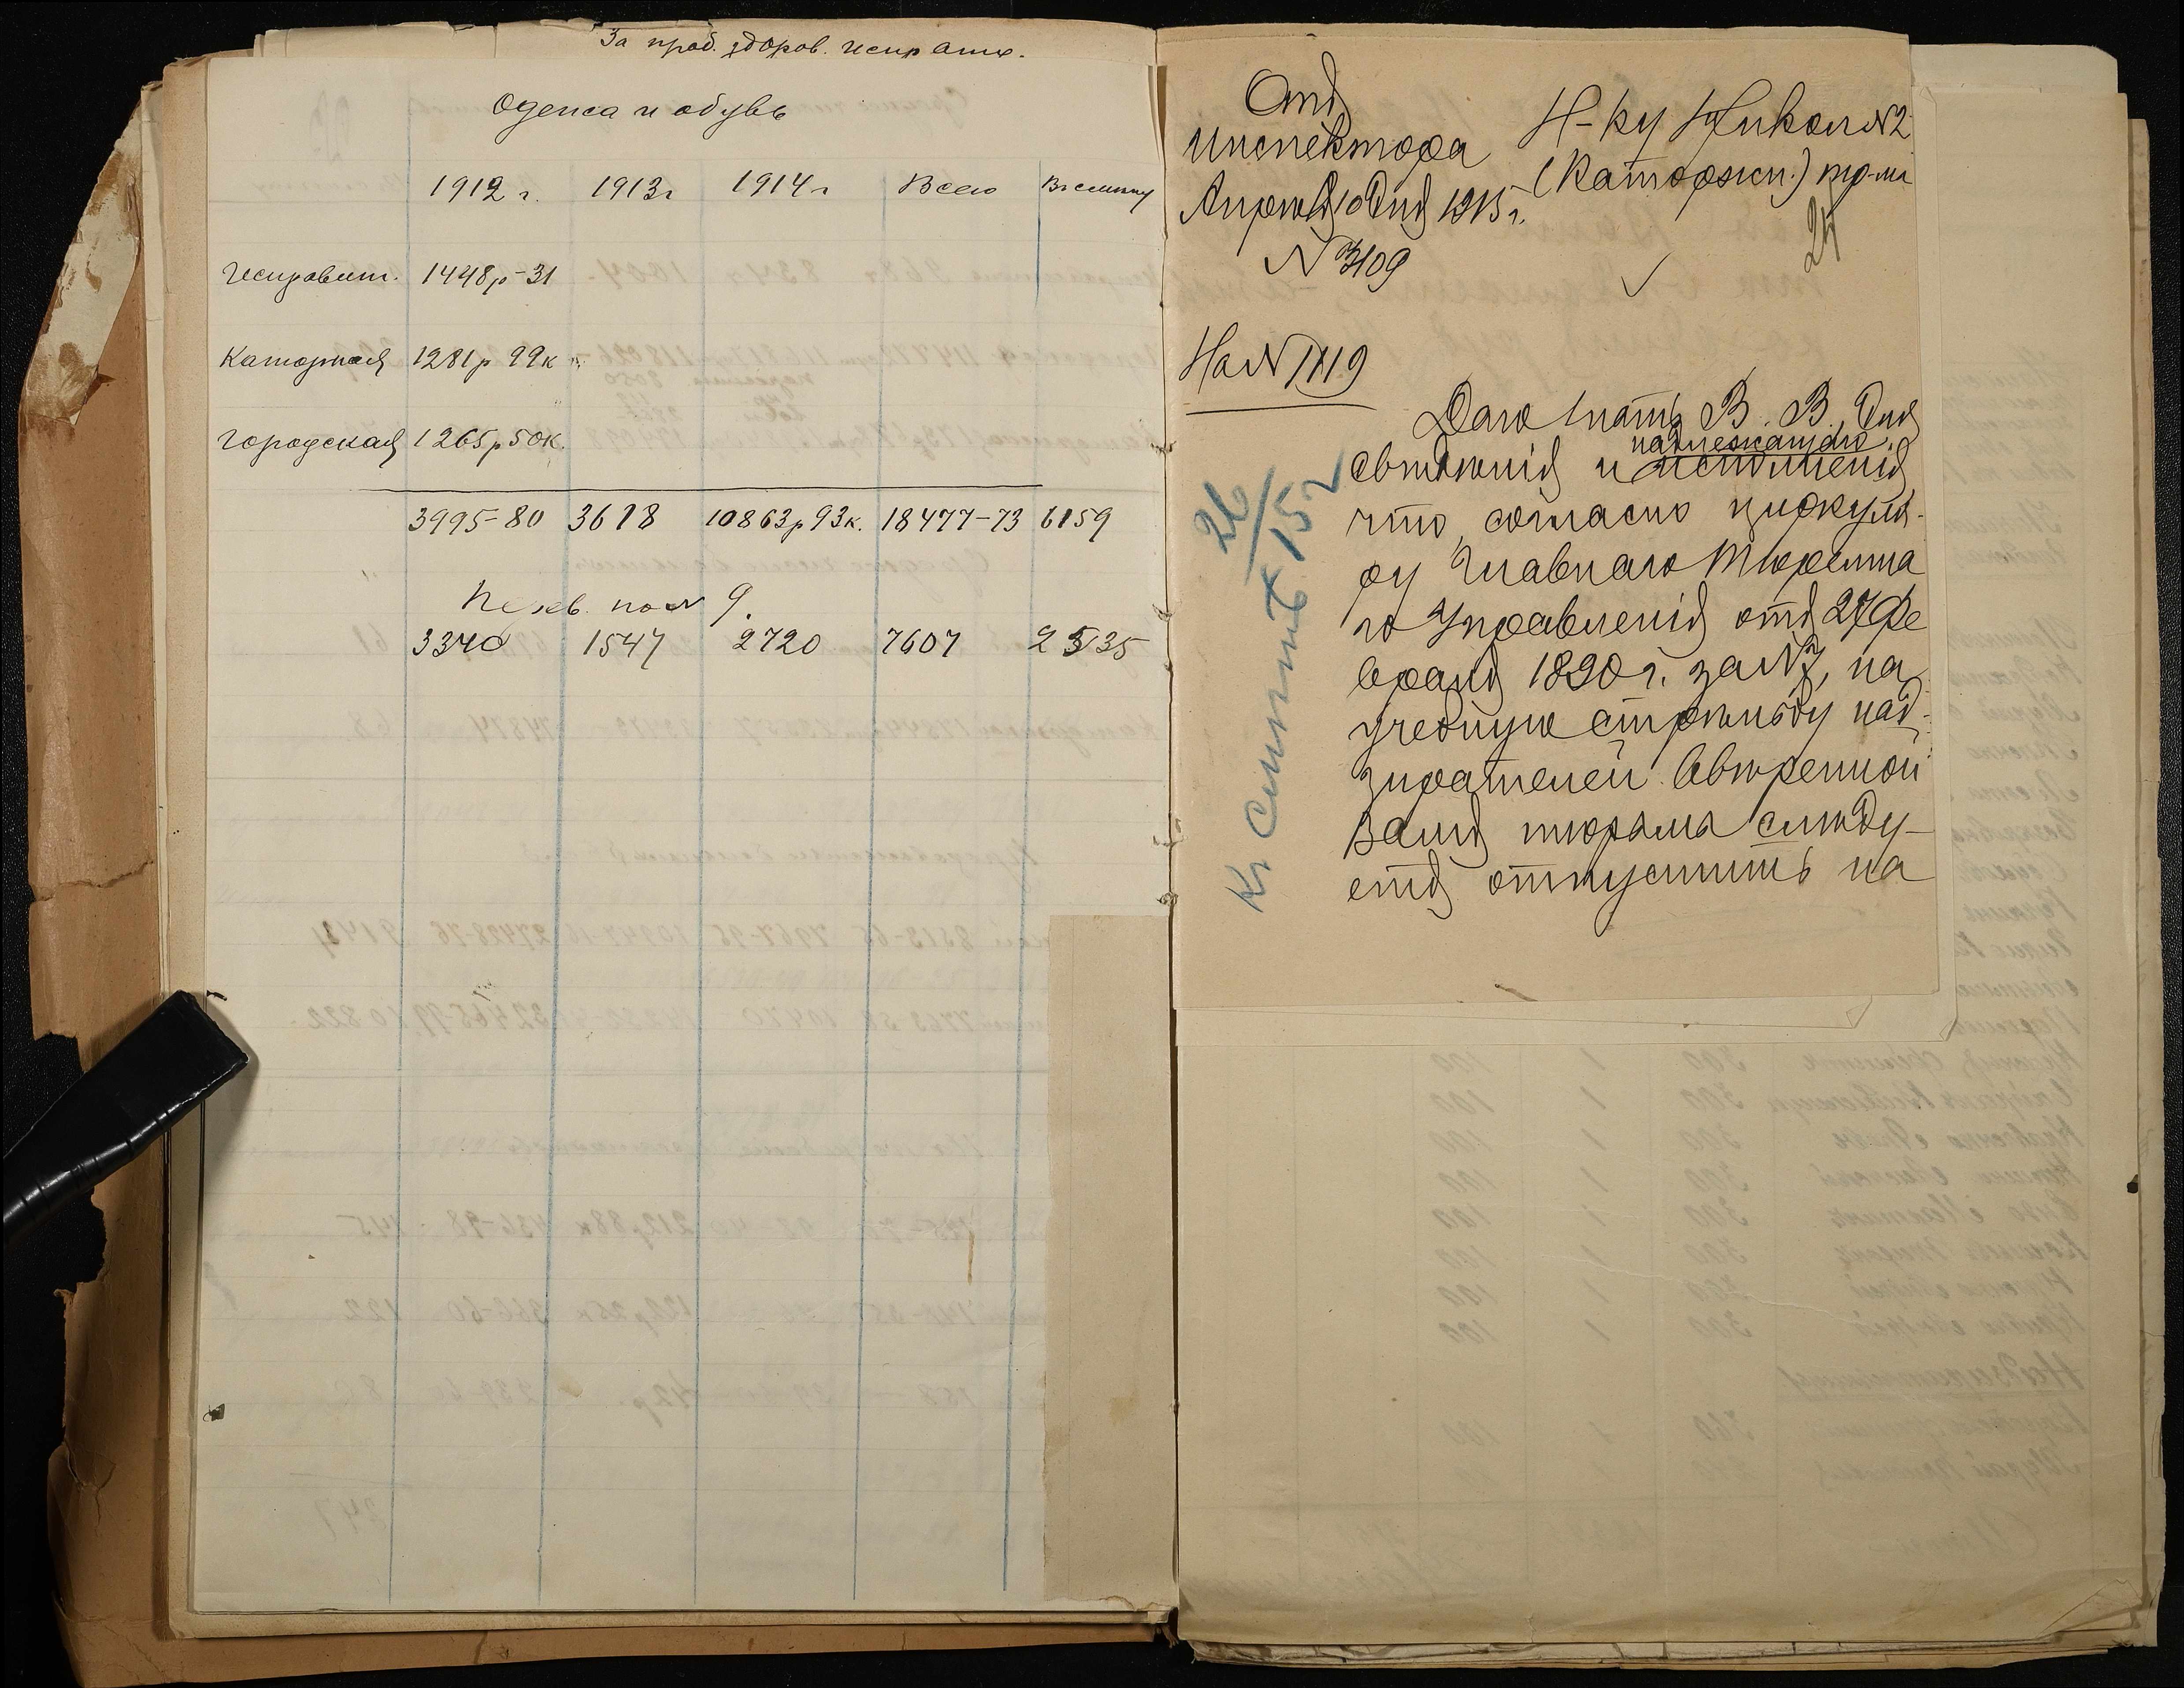 За прод. здоров. испр аити.
Одежа и обувь
1912 г. 1913 г 1914 г Всего
Исправит. 1448 р - 31
Каторжная 1281 р 99 к
Городская 1265 р 50 к.
3995-80 3618 10863 р 93 к. 18477-73 6159
по № 9.
3340 1547 2720 7607 2535
Отъ
Инспектора
Апреля 10 дня 1915 г.
№ 3109
Н-ку Никол №2
(Каторжн.) тю-мы
24
На № 1119
Даю знать В. В. для
надлежащаго
свѣдѣнія и исполненія
что, согласно циркуля-
ру Главнаго Тюремна
го Управленія отъ 27 Фе
враля 1890 г. за № 7, на
учебную стрѣльбу над-
зирателей ввѣренной
Вамъ тюрьмы слѣду-
етъ отпустить на
26/ 15 г
Къ